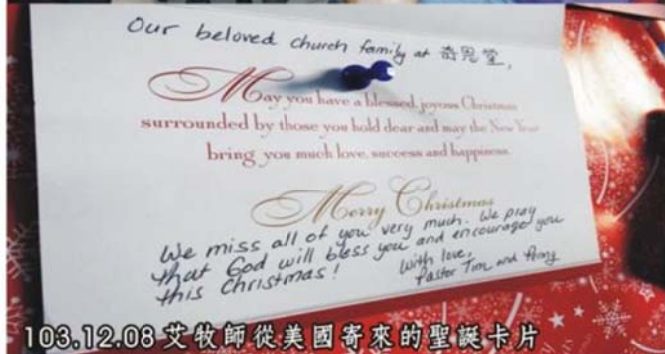 Our beloved church family at 奇恩堂,
May you have a blessed, joyous Christmas
surrounded by those you hold dear and may the New Year
bring you much love, success and happiness.
Merry Christmas
We miss all of you very much. We pray
that God will bless you and encourage you
this Christmas!
With love,
Pastor Tim and
103.12.08 艾牧師從美國寄來的聖誕卡片